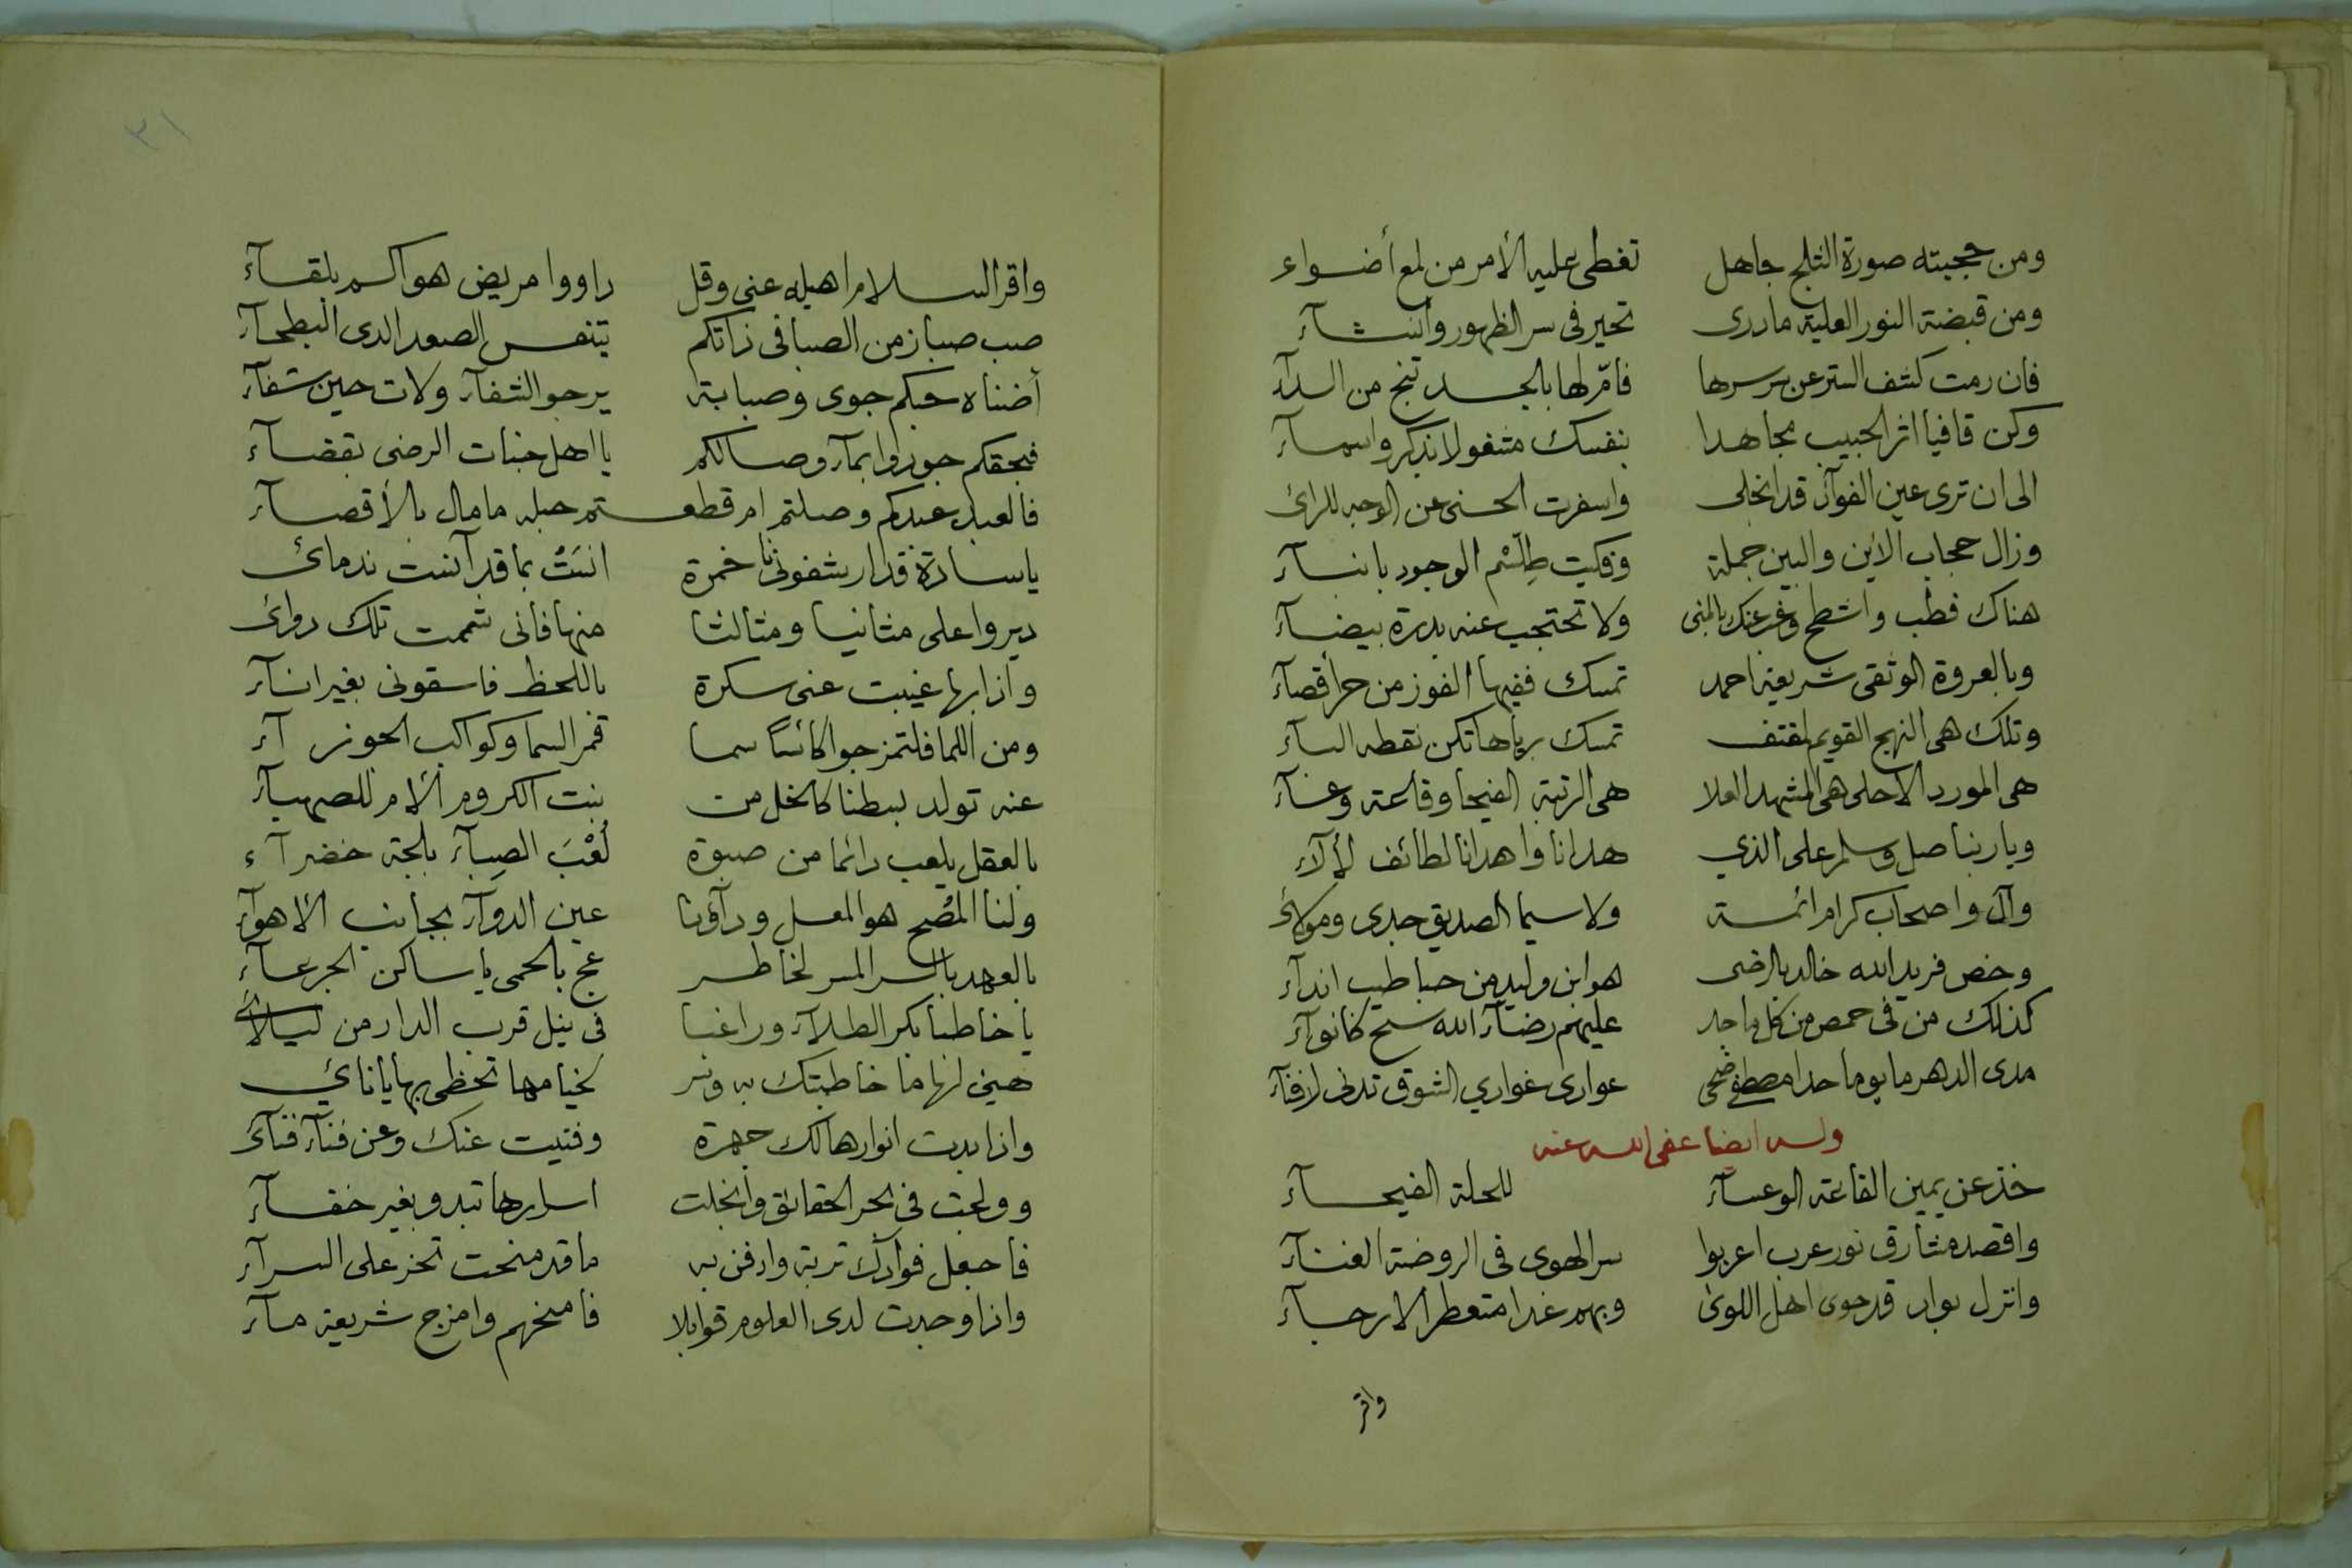 ومن حجبته صورة الثلج جاهل تغطى عليه الأمر من لمع أضواء
ومن قبضة النور العلية ما درى تحير فى سر الظهور وانشآء
فان رمت كشف الستر عن سر سرها فامّ لها بالجد تنج من الدآء
وكن قافيا اثر الحبيب مجاهدا بنفسك مشغولا بذكر واسمآء
الى ان ترى عين الفوآد قد انجلى واسفرت الحسنى عن الوجه للرائ
وزال حجاب الاين والبين جملة وفكيت طِلَّسْم الوجود بانبآء
هناك فطب واشطح وغب عنك بالمنى ولا تحتجب عنه بدرة بيضآء
وبالعروة الوثقى شريعة احمد تمسك ففيها الفوز من حر أقصآء
وتلك هى النهج القويم لمقتف تمسك برياها تكن نقطه البآء
هى المورد الاحلى هى المشهد العلا هى الرتبة الفيحا وقاعة وعسآء
ويا ربنا صل وسلم على الذي هدانا واهدانا لطائف لألآء
وآل واصحاب كرام ائمة ولا سيما الصديق جدى ومولائ
وخص فريد الله خالد بالرضى هو ابن وليد من حبا طيب اندآء
كذلك من فى حمص من كل ماجد عليهم رضآء الله سح كانوآء
مدى الدهر ما يوما حدا مصطفى ضحى عوارى غواري الشوق تدنى لافنآء
وله ايضا عفى الله عنه
خذ عن يمين القاعة الوعسآء للحلة الفيحآء
واقصد مشارق نور عرب اعربوا سر الهوى فى الروضة الغنآء
وانزل بواد قد حوى اهل اللوى وبهم غدا متعطر الارجآء
واقر
٣١
واقر السلام اهيله عنى وقل داووا مريض هواكم بلقآء
صب صبا زمن الصبا فى ذاتكم يتنفس الصعدا لدى البطحآء
أضناه حبكم جوى وصبابة يرجو الشفآء ولات حين شفآء
فبحقكم جودوا بمآء وصالكم يا اهل جنات الرضى بقضآء
فالعبد عبدكم وصلتم ام قطعتم حبله ما مال بالأقصآء
يا سادة قد ارشفونا خمرة انسَتْ بما قد آنست ندمائ
ديروا على مثانيا ومثالثا منها فانى شممت تلك دوائ
واذا بها غيبت عنى سكرة باللحظ فاسقونى بغير انآء
ومن اللما فلتمزجوا كائسًا سما قمر السما وكواكب الجوزآء
عنه تولد بسطنا كالخل من بنت الكروم الام للصهبآء
بالعقل يلعب دائما من صبوة لُعْبَ الصِبآء بلجة خضرآء
ولنا المُصْح هو المعل ودآؤنا عين الدوآء بجانب الاهوآء
بالعهد بالسر المسر لخاطر عج بالحمى يا ساكن الجرعآء
يا خاطبا بكر الطلآء وراغبا فى نيل قرب الدار من ليلائ
هيئ لها ما خاطبتك به وسر لخيامها تحظى بها يا نائي
واذا بدت انوارها لك جهرة وفنيت عنك وعن فنآء فنآء
وولجت فى بحر الحقائق وانجلت اسرارها تبدو بغير خفآء
فاجعل فوآدك تربة وادفن به ما قد منحت تحز على السرآء
واذا وجدت لدى العلوم قوابلا فامنحهم وامزج شريعة مآء